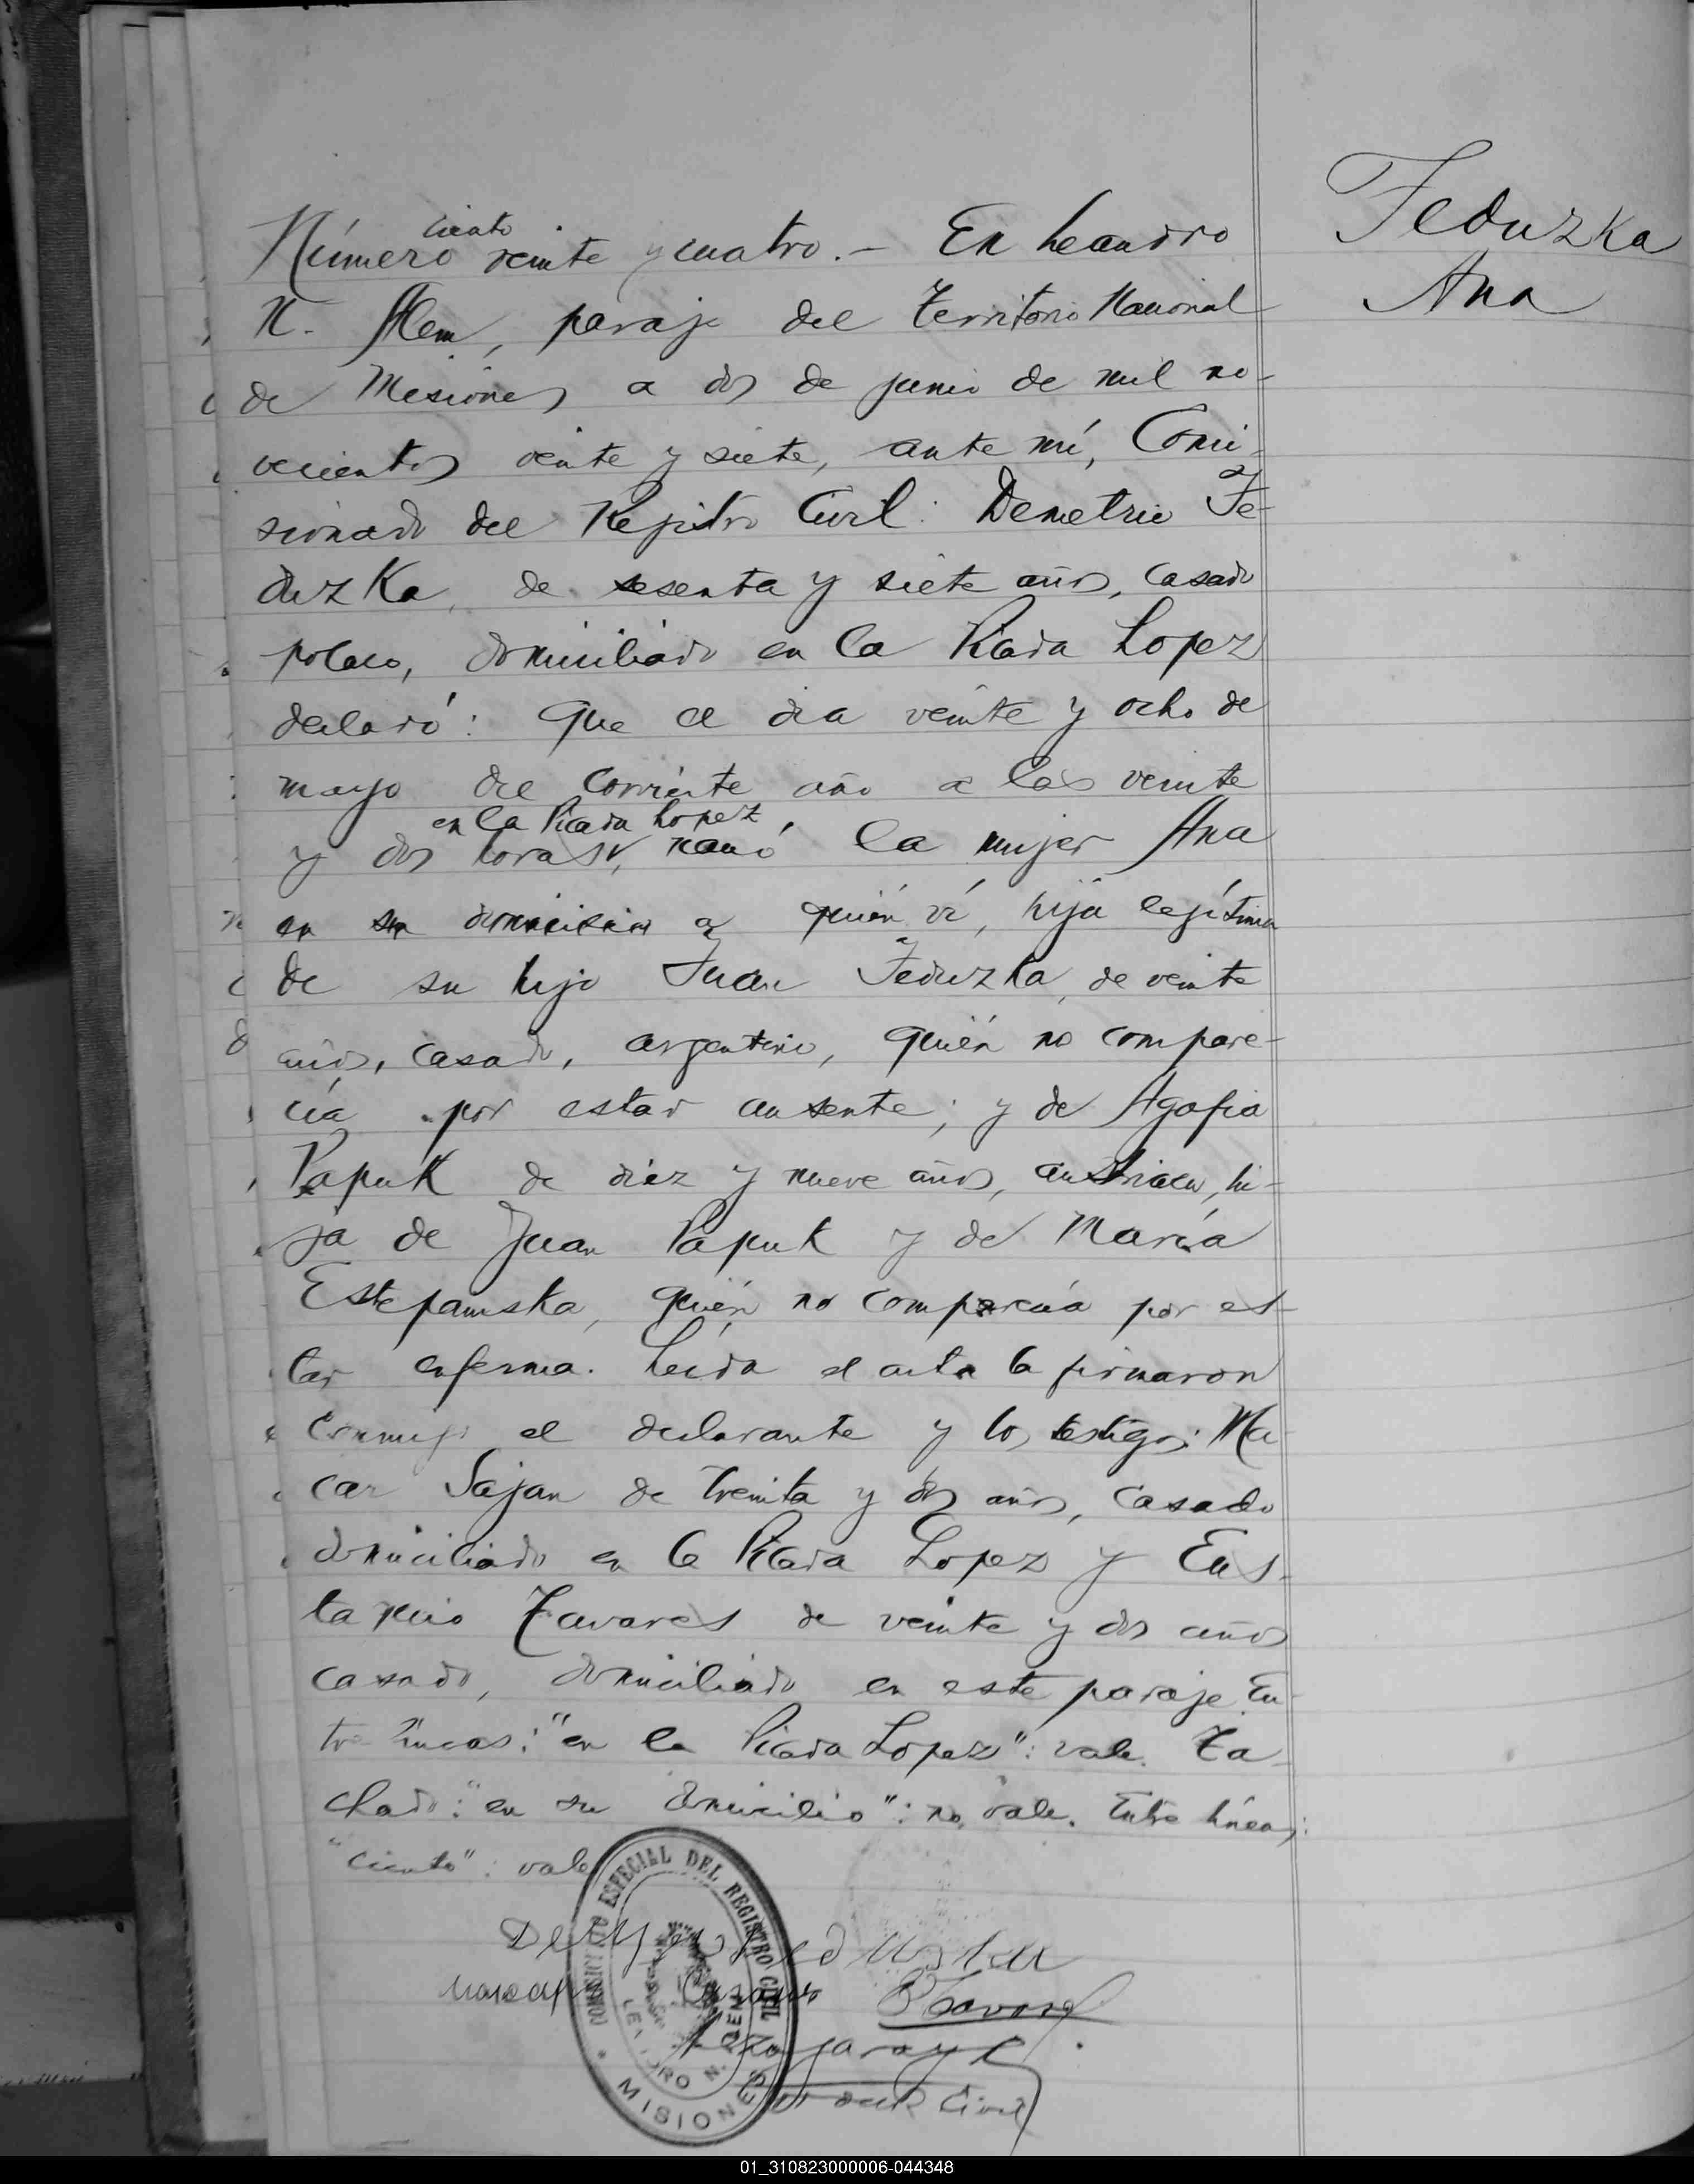 Feduzka
Ana
ciento
Número veinte y cuatro.- En Leandro
N. Alem, paraje del Territorio Nacional
de Misiones a dos de junio de mil no-
vecientos veinte y siete, ante mí, Comi-
sionado del Registro Civil: Demetrio Fe-
duzka, de sesenta y siete años, casado
polaco, domiciliado en la Picada Lopez
declaró: Que el dia veinte y ocho de
mayo del corriente año a las veinte
en la Picada Lopez
y dos horas, nació la mujer Ana
en su domicilio a quién ví, hija legítima
de su hijo Juan Feduzka, de veinte
años, casado, argentino, quién no compare-
cía por estar ausente; y de Agafia
Papuk de diez y nueve años, austriaca, hi-
ja de Juan Papuk y de María
Estepanska, quién no comparecía por es-
tar enferma. Leida el acta la firmaron
conmigo el declarante y los testigos: Ma-
car Sajan de treinta y dos años, casado
domiciliado en la Picada Lopez y Eus-
taquio Tavares de veinte y dos años
casado, domiciliado en este paraje. En-
tre líneas: "en la Picada Lopez": vale. Ta-
chado: "en su domicilio": no vale. Entre líneas:
"ciento": vale
COMISARIATO ESPECIAL DEL REGISTRO CIVIL
LEANDRO N. ALEM
MISIONES
E Tavares
01_310823000006-044348